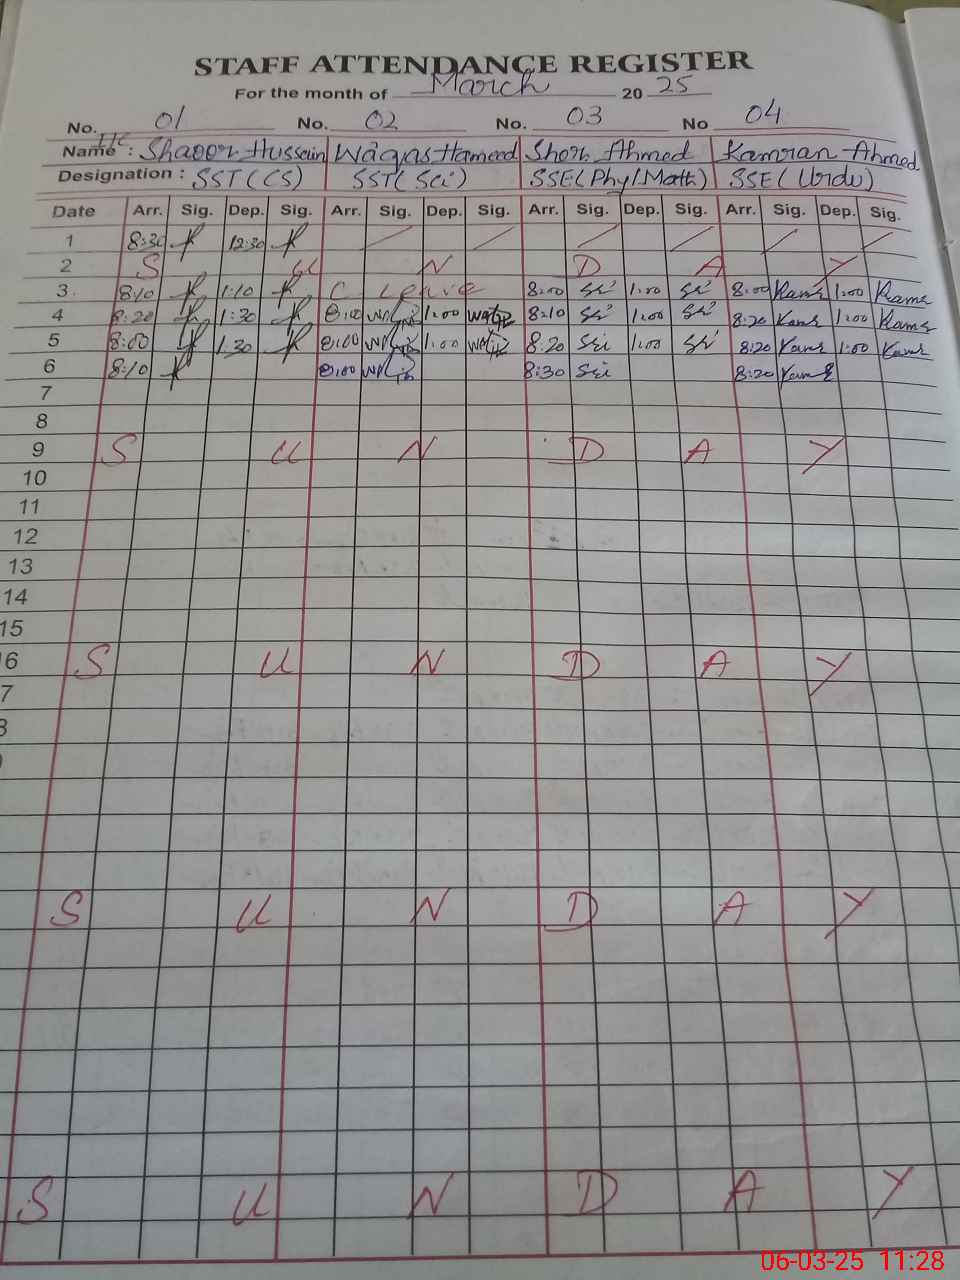 STAFF ATTENDANCE REGISTER
For the month of March 20 25
No. 01 No. 02 No. 03 No 04
I/C
Name : Shaoor Hussain Waqas Hameed Shor Ahmed Kamran Ahmed
Designation : SST(CS) SST(Sci) SSE(Phy/Math) SSE(Urdu)
Date Arr. Sig. Dep. Sig. Arr. Sig. Dep. Sig. Arr. Sig. Dep. Sig. Arr. Sig. Dep. Sig.
1 8:30 12:30
2 S U N D A Y
3 8:10 1:10 C. Leave 8:00 1:00 8:00 1:00
4 8:20 1:30 8:00 1:00 8:10 1:00 8:20 1:00
5 8:00 1:30 8:00 1:00 8:20 1:00 8:20 1:00
6 8:10 8:00 8:30 8:20
7
8
9 S U N D A Y
10
11
12
13
14
15
6 S U N D A Y
7
8
S U N D A Y
S U N D A Y
06-03-25 11:28